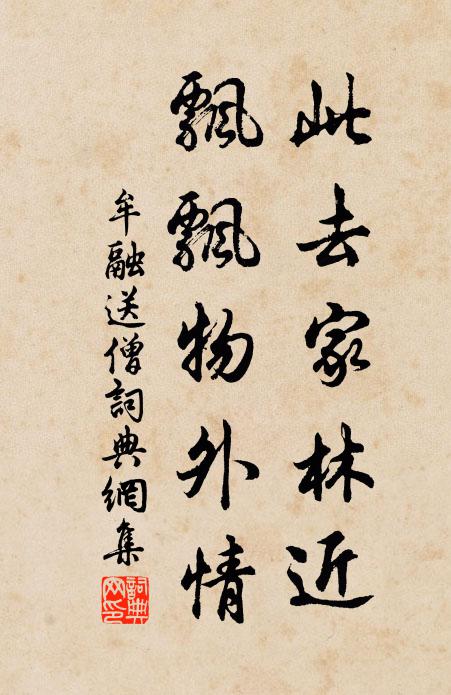 此去家林近
飄飄物外情
牟融送僧詞典網集
詞典網印